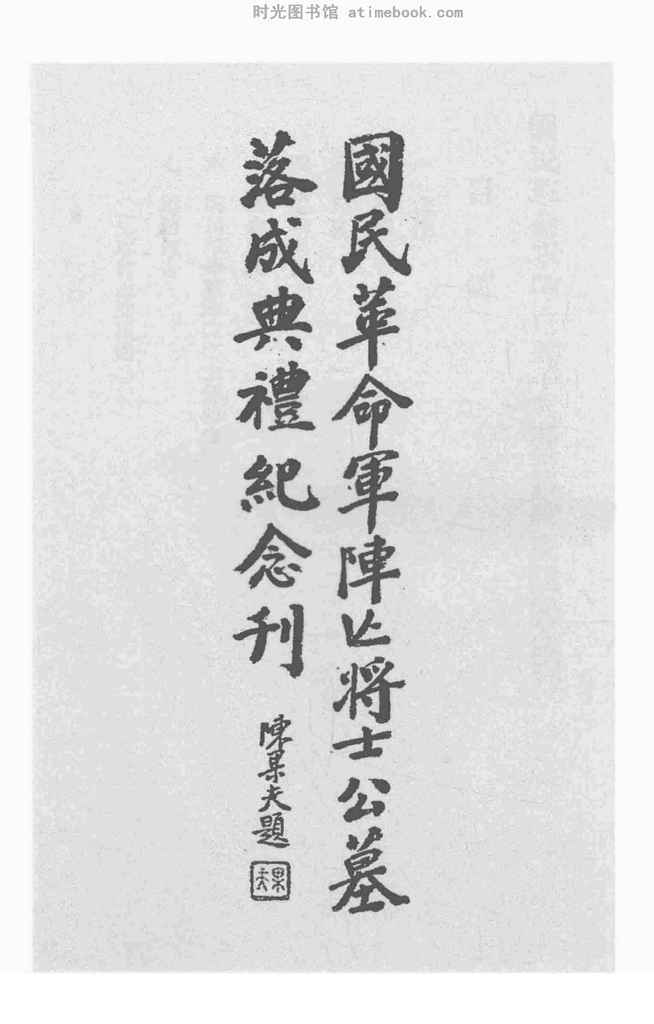 时光图书馆 atimebook.com
國民革命軍陣亡將士公墓
落成典禮紀念刊
陳果夫題
果夫